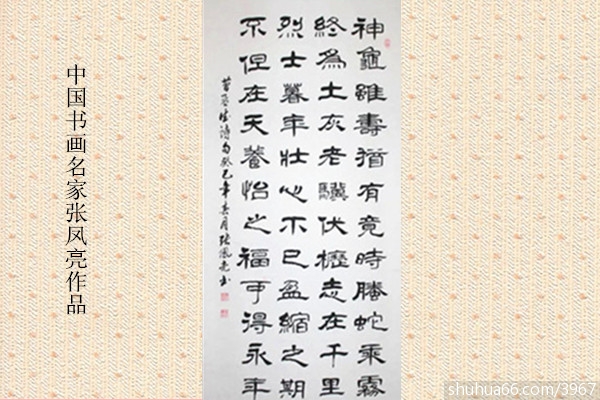 中国书画名家张凤亮作品
神龜雖壽猶有竟時騰蛇乘霧
終為土灰老驥伏櫪志在千里
烈士暮年壯心不已盈縮之期
不但在天養怡之福可得永年
曹孟德诗句癸巳年春月张凤亮书
shuhua66.com/3967